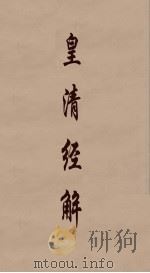 皇清经解
研狗
mtoou.info